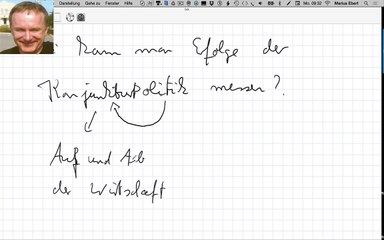 Darstellung Fenster Hilfe Mo. 09:32 Marius Ebert
kann man Erfolge der
Konjunkturpolitik messen?
Auf und Ab
der Wirtschaft